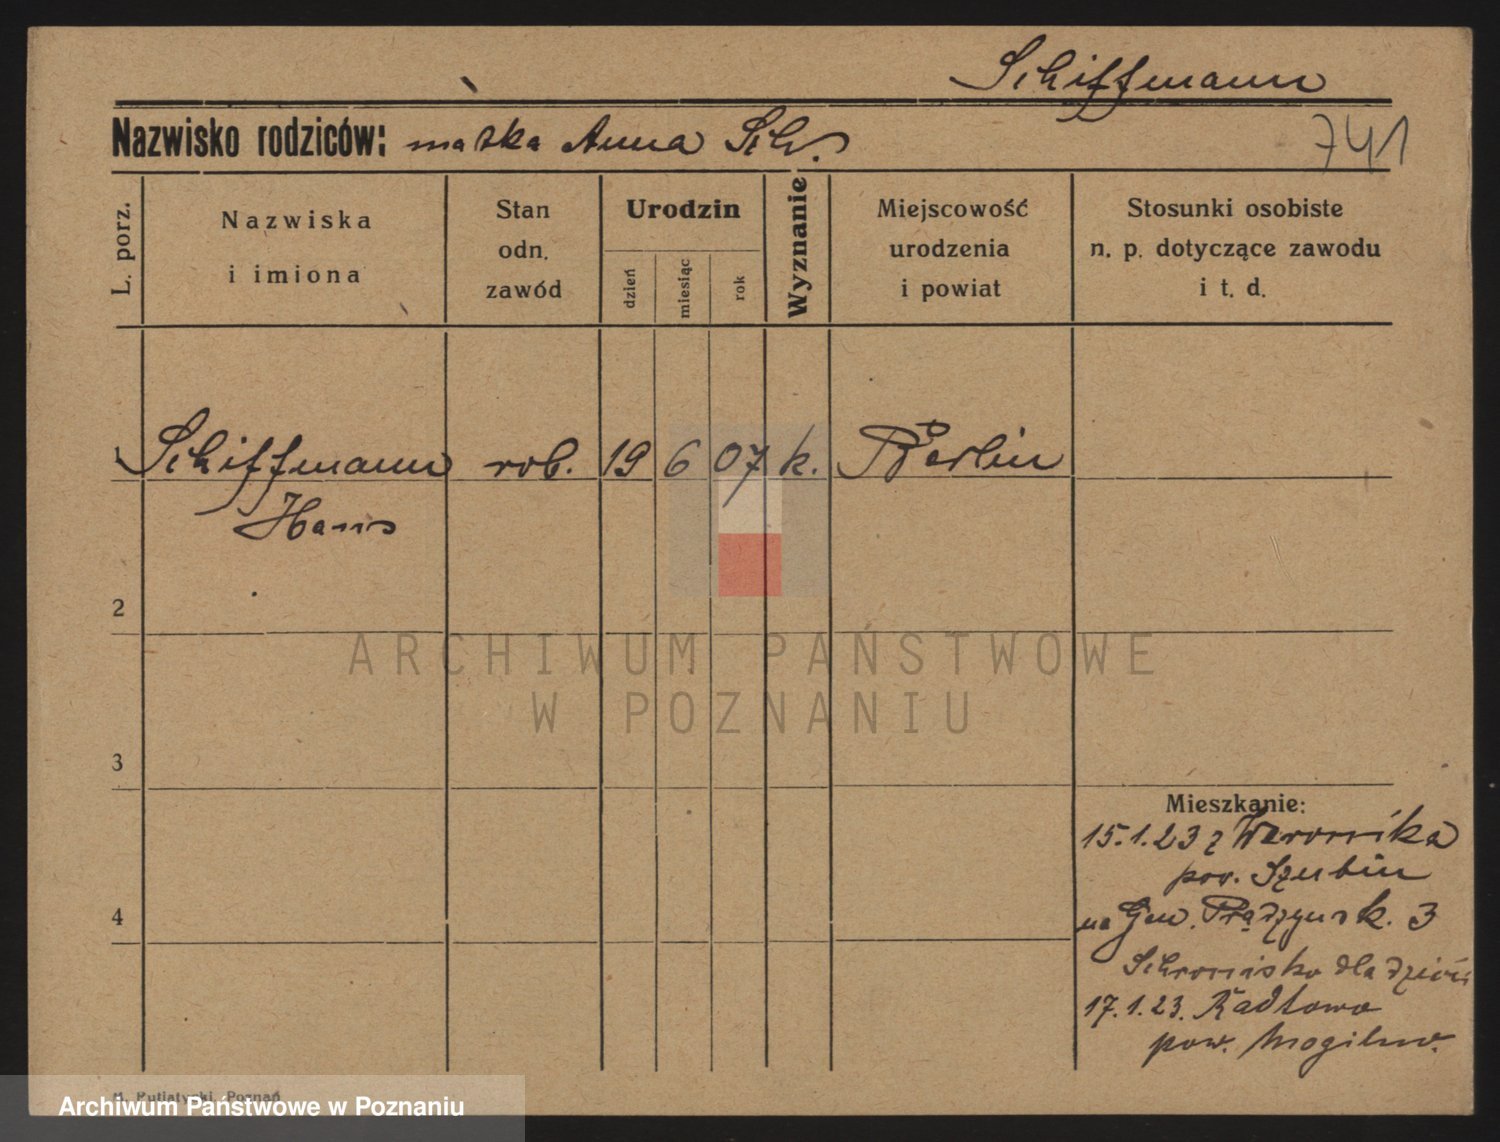 Schiffmann
Nazwisko rodziców: matka Anna Sch.
741
L. porz.
Nazwiska
i imiona
Stan
odn.
zawód
Urodzin
dzień
miesiąc
rok
Wyznanie
Miejscowość
urodzenia
i powiat
Stosunki osobiste
n. p. dotyczące zawodu
i t. d.
1 Schiffmann rob. 19 6 07 k. Berlin
Hans
2
ARCHIWUM PAŃSTWOWE
W POZNANIU
3
Mieszkanie:
15.1.23 z Weronika
pow. Szubin
4
na Gen. Prądzyńsk. 3
Schronisko dla dzieci
17.1.23. Radłowo
pow. Mogilno.
Putiatycki, Poznań
Archiwum Państwowe w Poznaniu